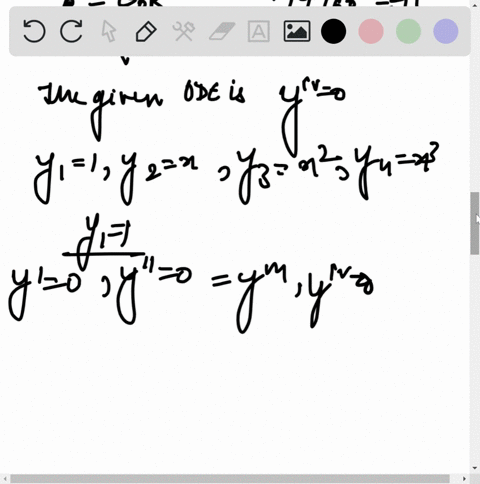 The given ODE is y^{iv}=0
y_1=1, y_2=x, y_3=x^2, y_4=x^3
y_1=1
y'=0, y''=0 = y''', y^{iv}=0